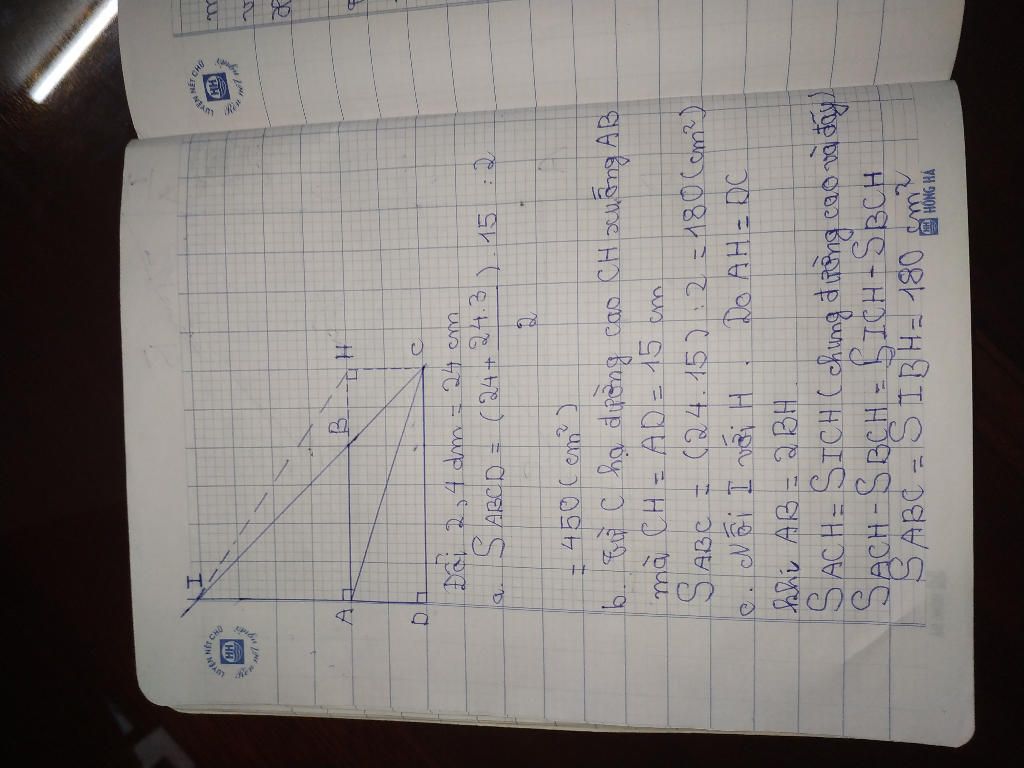 I
A
B
H
D
C
Đổi 2,4 dm = 24 cm
a. SABCD = (24 + 24.3/2) . 15 : 2
= 450 (cm²)
b. Từ C hạ đường cao CH xuống AB
mà CH = AD = 15 cm
SABC = (24.15) : 2 = 180 (cm²)
c. Nối I với H. Do AH = DC
khi AB = 2BH
SACH = SICH (chung đường cao và đáy)
SACH - SBCH = SICH - SBCH
SABC = SIBH = 180 cm²
LUYỆN NÉT CHỮ
HH
Luyện nết người
LUYỆN NÉT CHỮ
HH
HỒNG HÀ